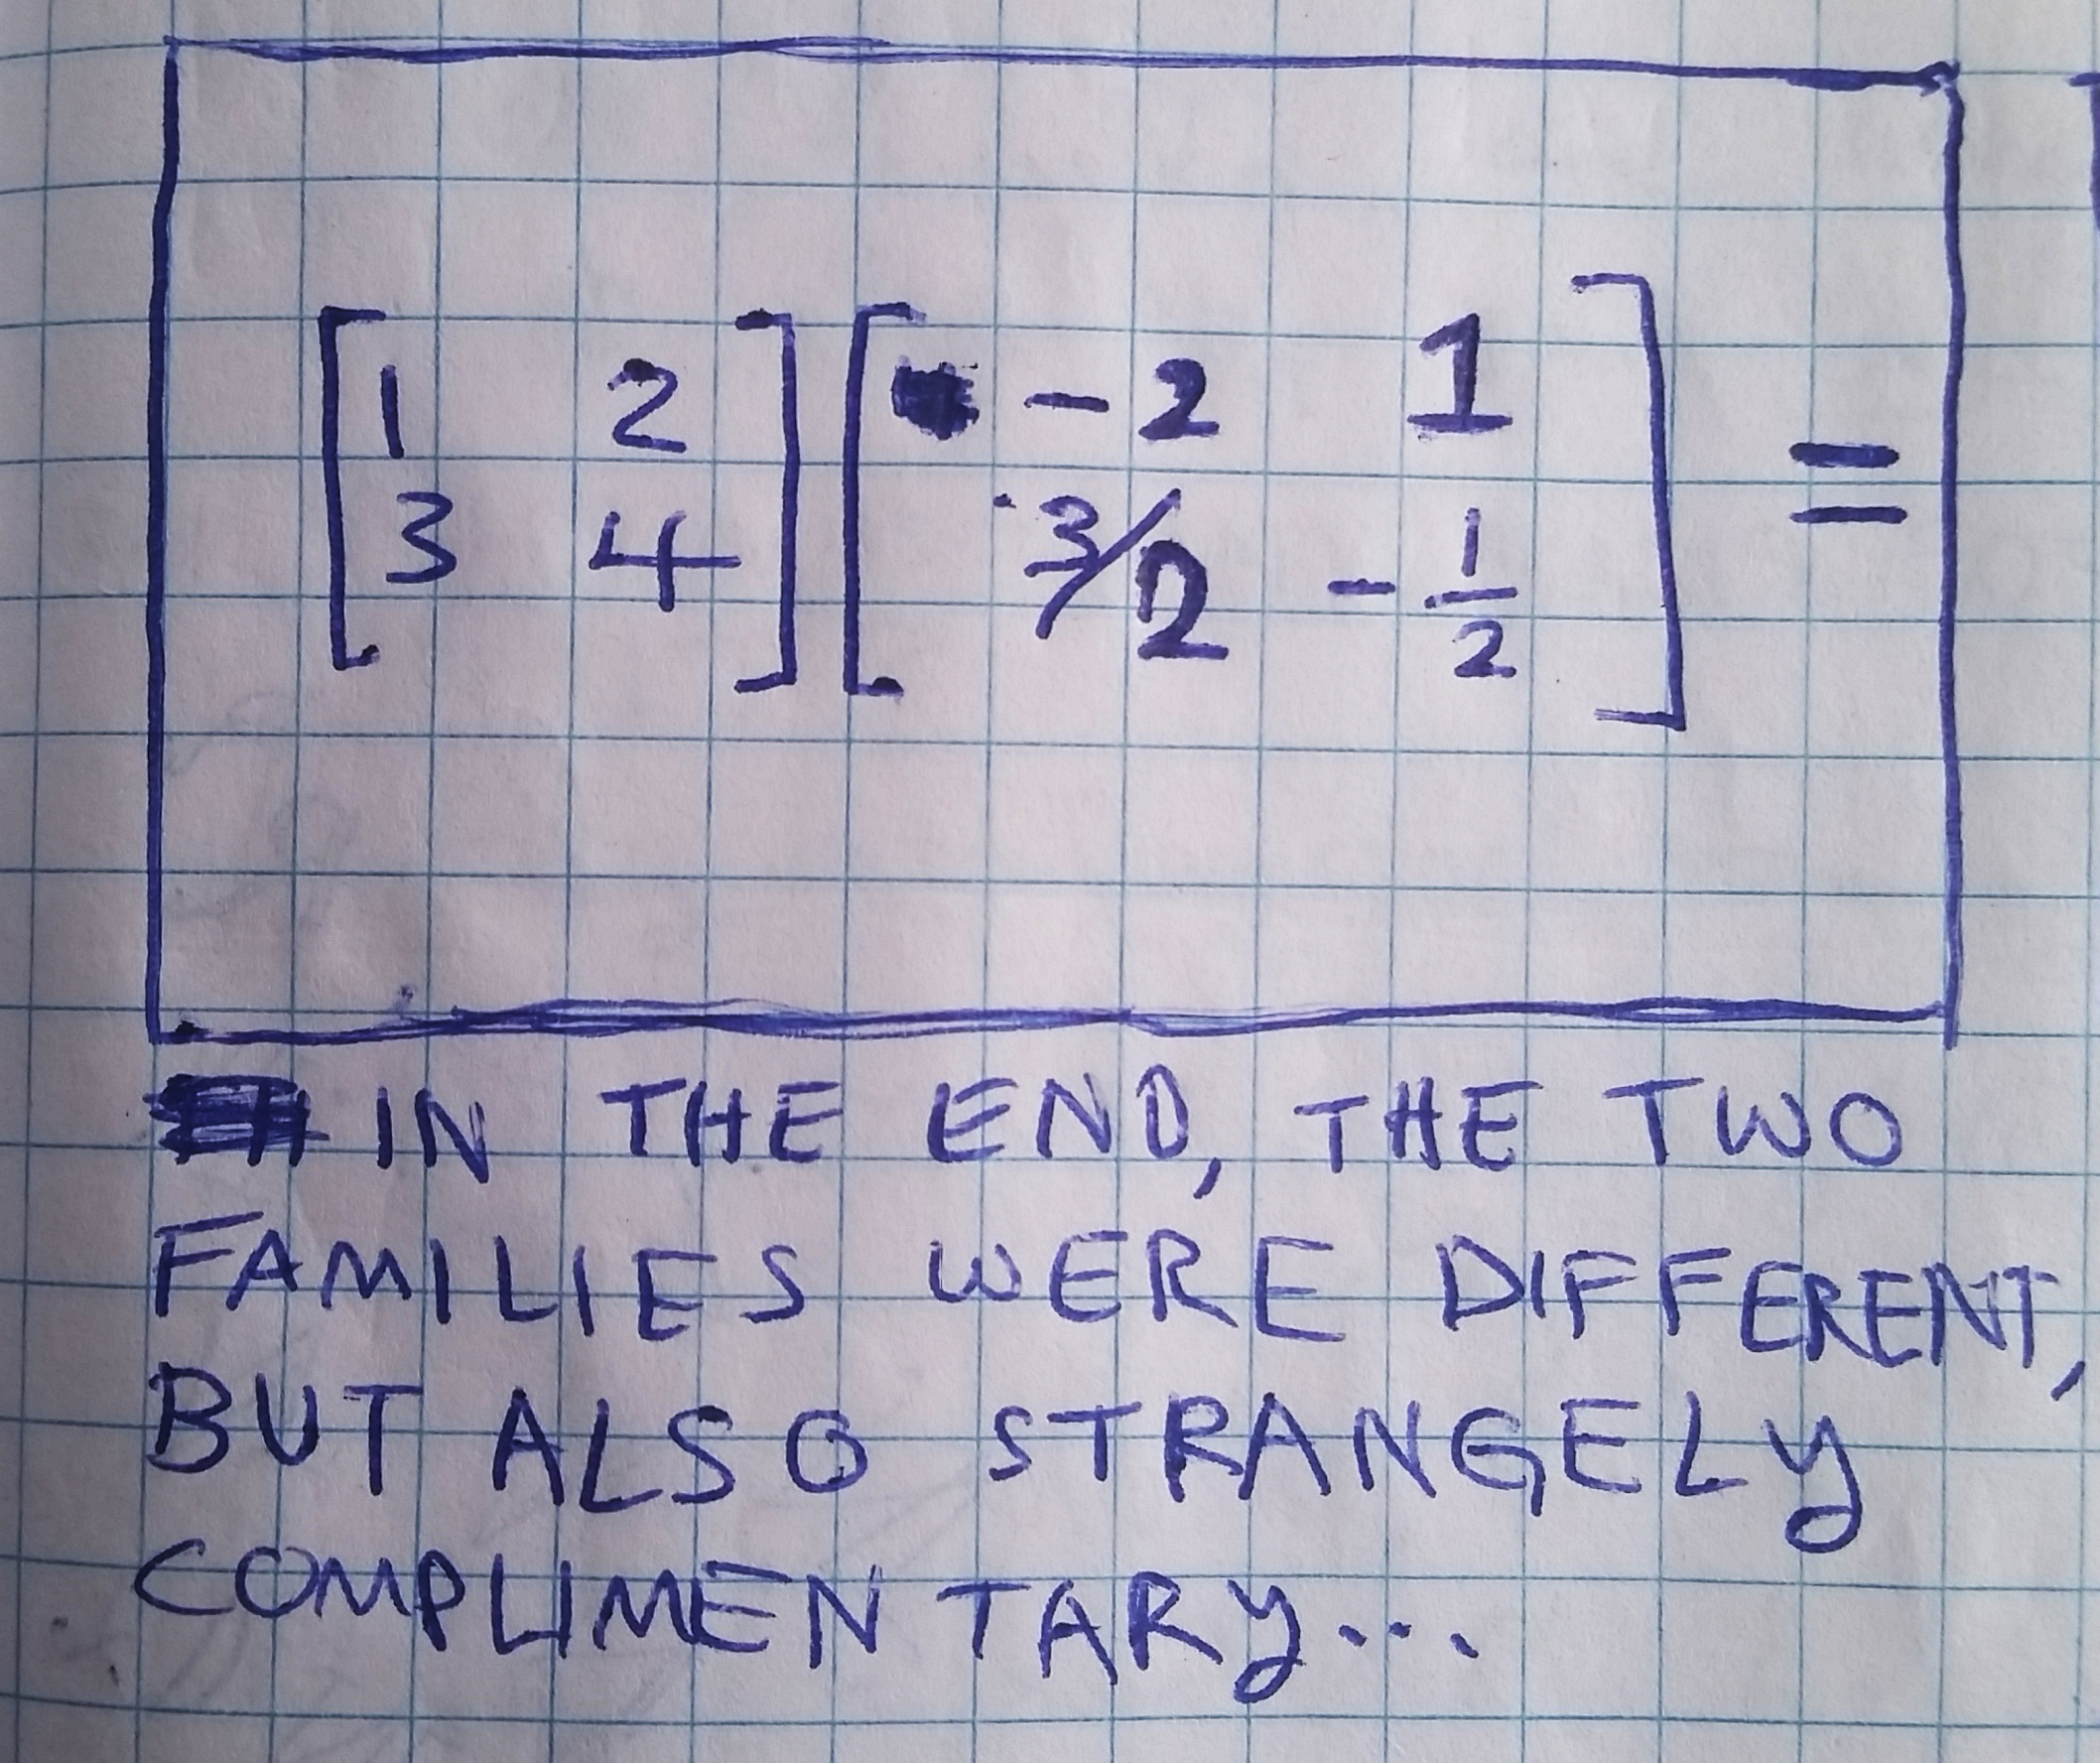 [1 2] [-2 1] =
[3 4] [3/2 -1/2]
IN THE END, THE TWO
FAMILIES WERE DIFFERENT,
BUT ALSO STRANGELY
COMPLIMENTARY...